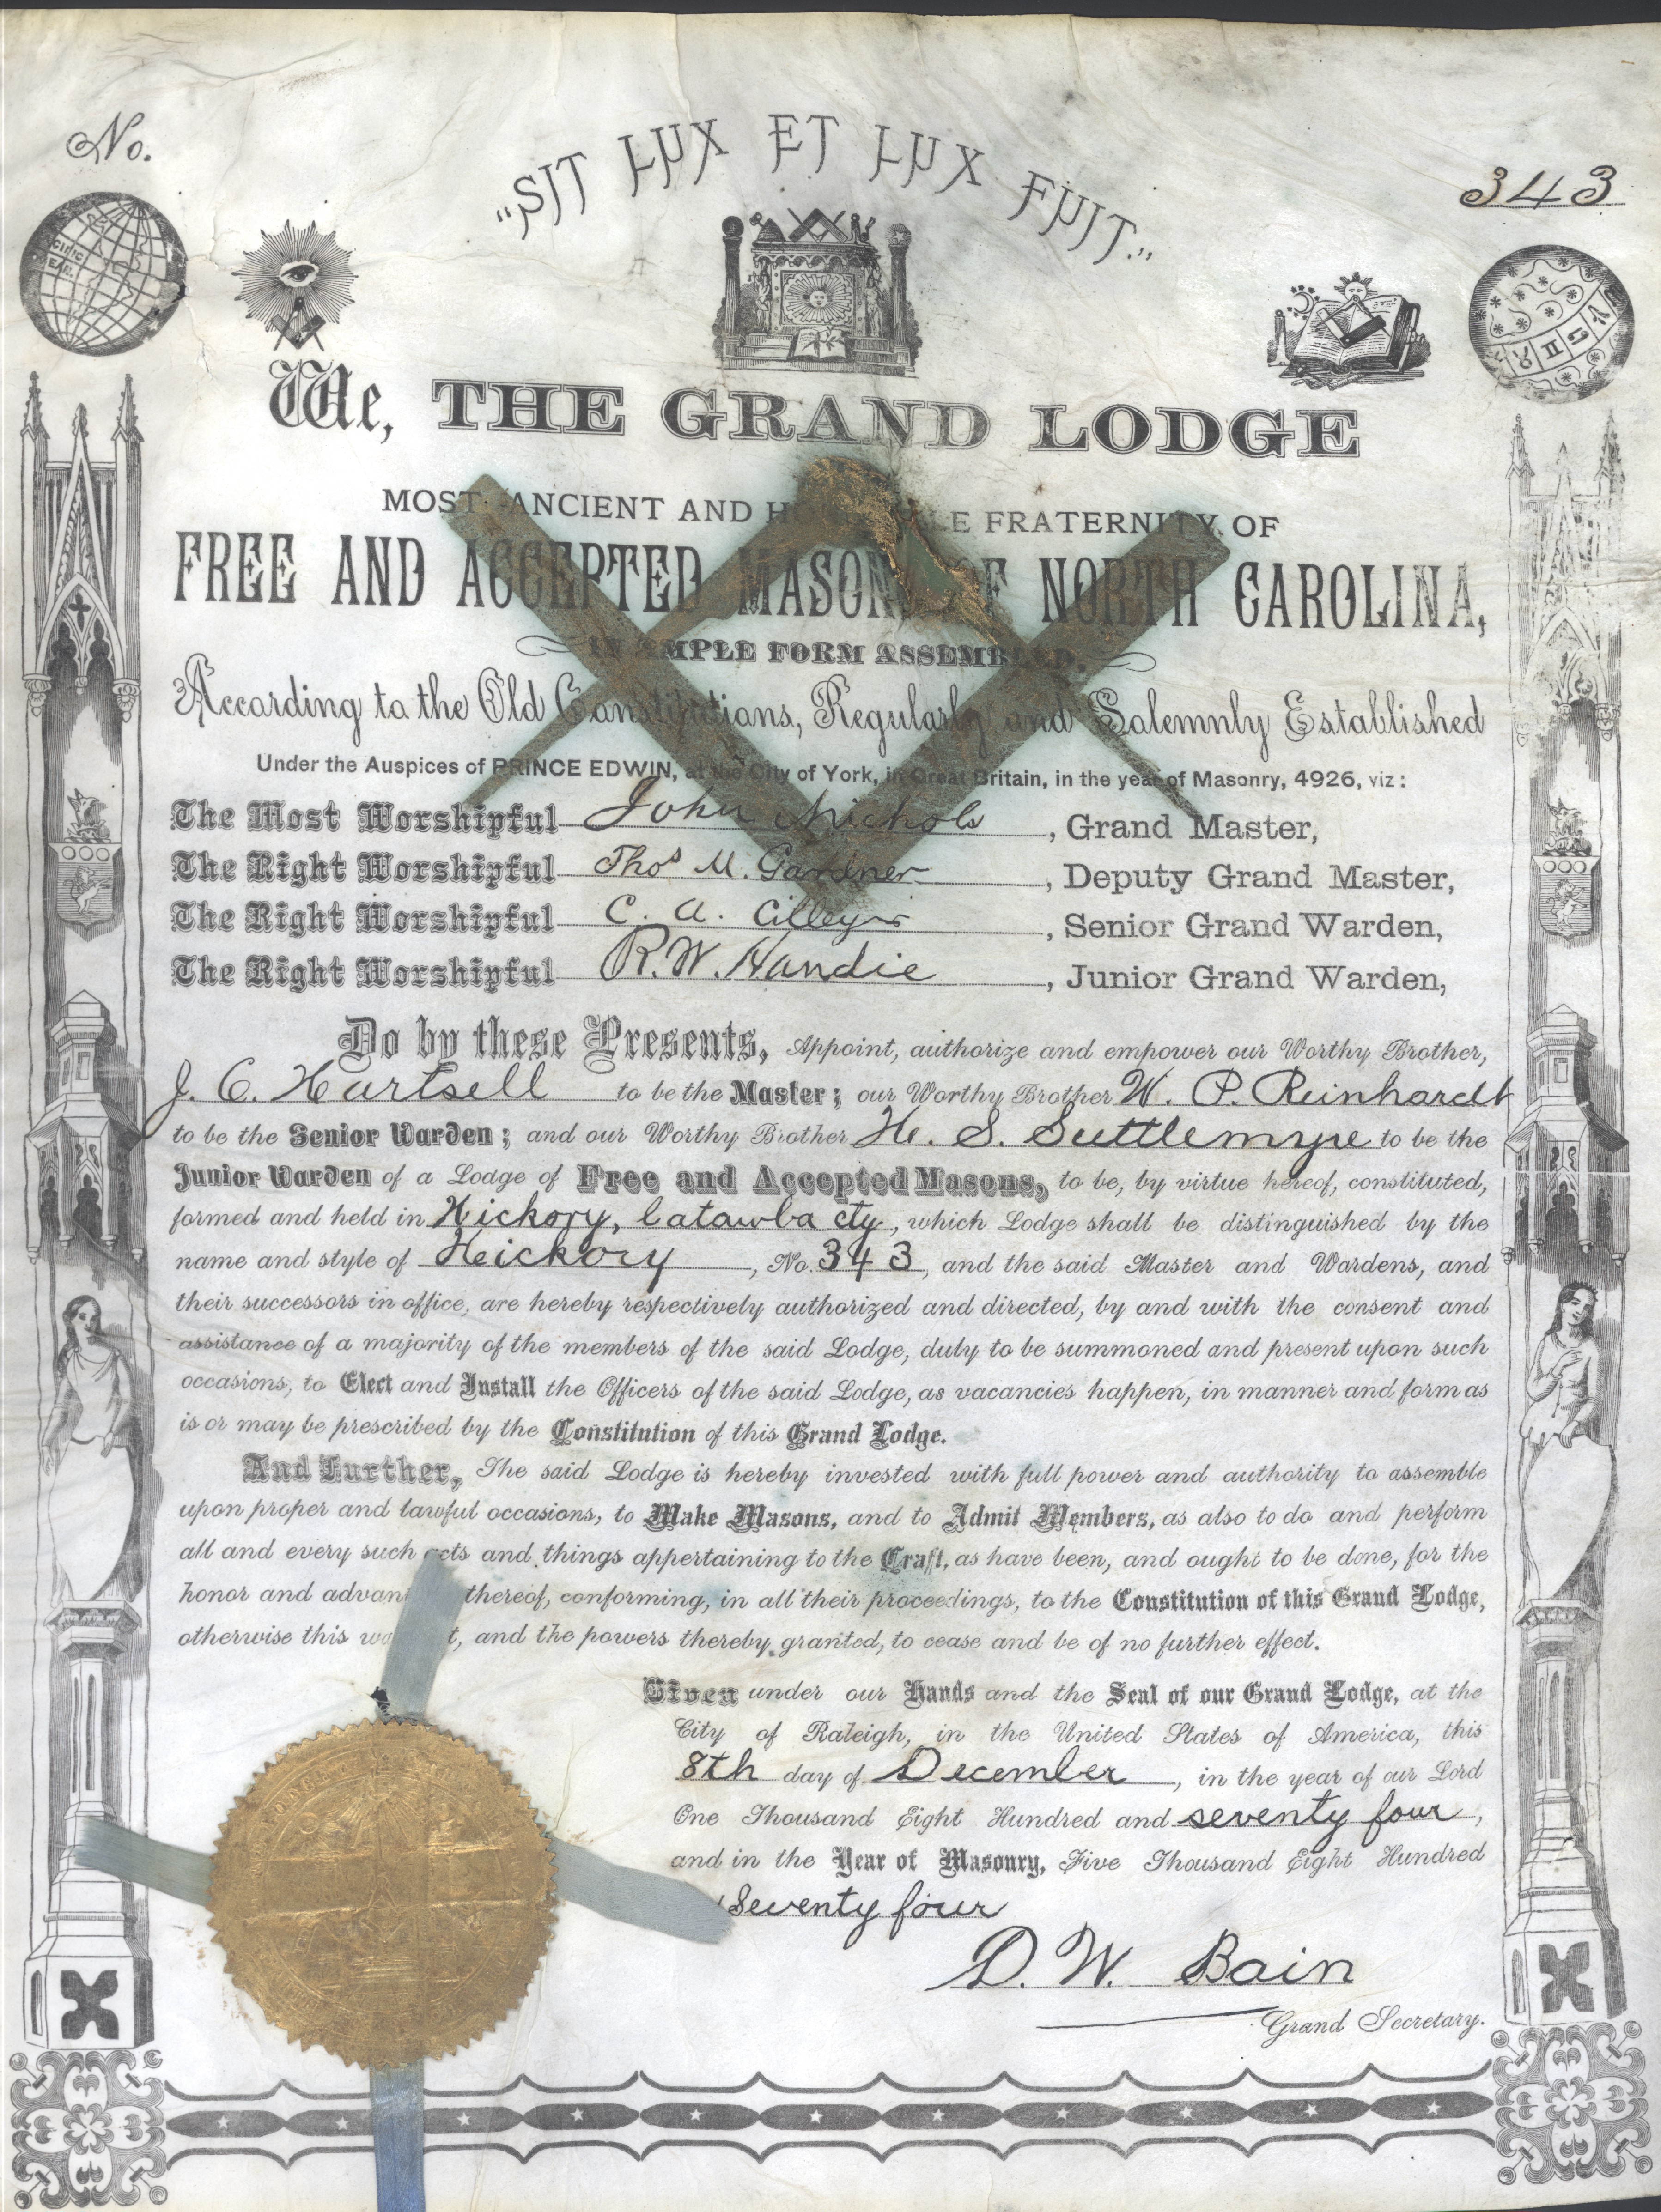 No.
343
"SIT LUX ET LUX FUIT."
We, THE GRAND LODGE
MOST ANCIENT AND FRATERNITY OF
FREE AND ACCEPTED MASONS OF NORTH CAROLINA,
IN AMPLE FORM ASSEMBLED,
According to the Old Constitutions, Regularly and Solemnly Established
Under the Auspices of PRINCE EDWIN, at the City of York, in Great Britain, in the year of Masonry, 4926, viz:
The Most Worshipful John Nichols, Grand Master,
The Right Worshipful Thos M. Gardner, Deputy Grand Master,
The Right Worshipful C. A. Cilley, Senior Grand Warden,
The Right Worshipful R. W. Hardie, Junior Grand Warden,
Do by these Presents, Appoint, authorize and empower our Worthy Brother,
J. C. Hartsell to be the Master; our Worthy Brother W. P. Reinhardt
to be the Senior Warden; and our Worthy Brother H. S. Suttlemyre to be the
Junior Warden of a Lodge of Free and Accepted Masons, to be, by virtue hereof, constituted,
formed and held in Hickory, Catawba cty, which Lodge shall be distinguished by the
name and style of Hickory, No. 343, and the said Master and Wardens, and
their successors in office, are hereby respectively authorized and directed, by and with the consent and
assistance of a majority of the members of the said Lodge, duly to be summoned and present upon such
occasions, to Elect and Install the Officers of the said Lodge, as vacancies happen, in manner and form as
is or may be prescribed by the Constitution of this Grand Lodge.
And Further, The said Lodge is hereby invested with full power and authority to assemble
upon proper and lawful occasions, to Make Masons, and to Admit Members, as also to do and perform
all and every such acts and things appertaining to the Craft, as have been, and ought to be done, for the
honor and advan thereof, conforming, in all their proceedings, to the Constitution of this Grand Lodge,
otherwise this wa t, and the powers thereby granted, to cease and be of no further effect.
Given under our Hands and the Seal of our Grand Lodge, at the
City of Raleigh, in the United States of America, this
8th day of December, in the year of our Lord
One Thousand Eight Hundred and seventy four,
and in the Year of Masonry, Five Thousand Eight Hundred
Seventy four
D. W. Bain
Grand Secretary.